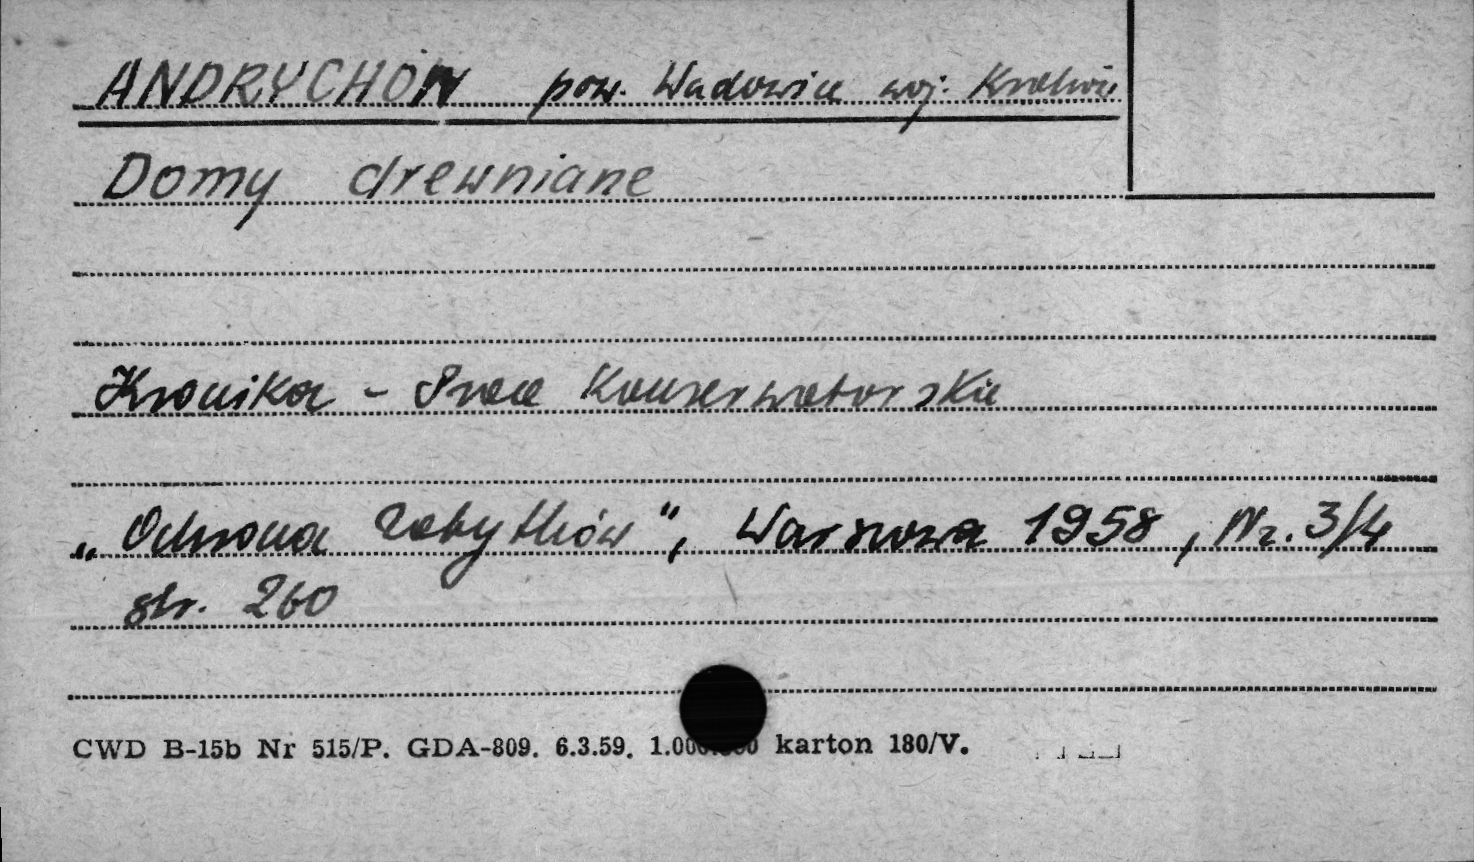 ANDRYCHÓW pow. Wadowice woj. Kraków
Domy drewniane
Kronika - Prace Konserwatorskie
„Ochrona Zabytków", Warszawa 1958, Nr. 3/4
str. 260
CWD B-15b Nr 515/P. GDA-809. 6.3.59. 1.000.000 karton 180/V.